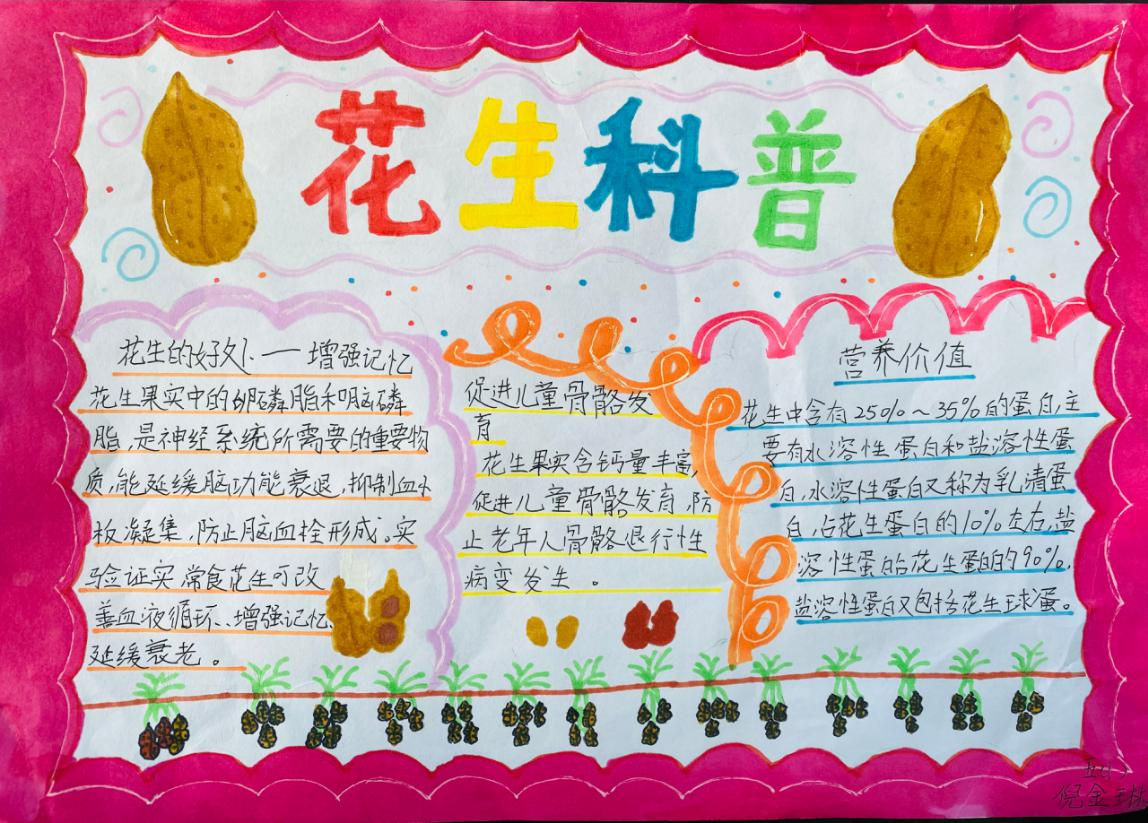 花生科普
花生的好处——增强记忆
花生果实中的卵磷脂和脑磷
脂,是神经系统所需要的重要物
质,能延缓脑功能衰退,抑制血小
板凝集,防止脑血栓形成。实
验证实,常食花生可改
善血液循环、增强记忆、
延缓衰老。
促进儿童骨骼发
育
花生果实含钙量丰富,
促进儿童骨骼发育,防
止老年人骨骼退行性
病变发生。
营养价值
花生中含有25%~35%的蛋白,主
要有水溶性蛋白和盐溶性蛋
白,水溶性蛋白又称为乳清蛋
白,占花生蛋白的10%左右,盐
溶性蛋白占花生蛋白的90%,
盐溶性蛋白又包括花生球蛋。
倪金琳